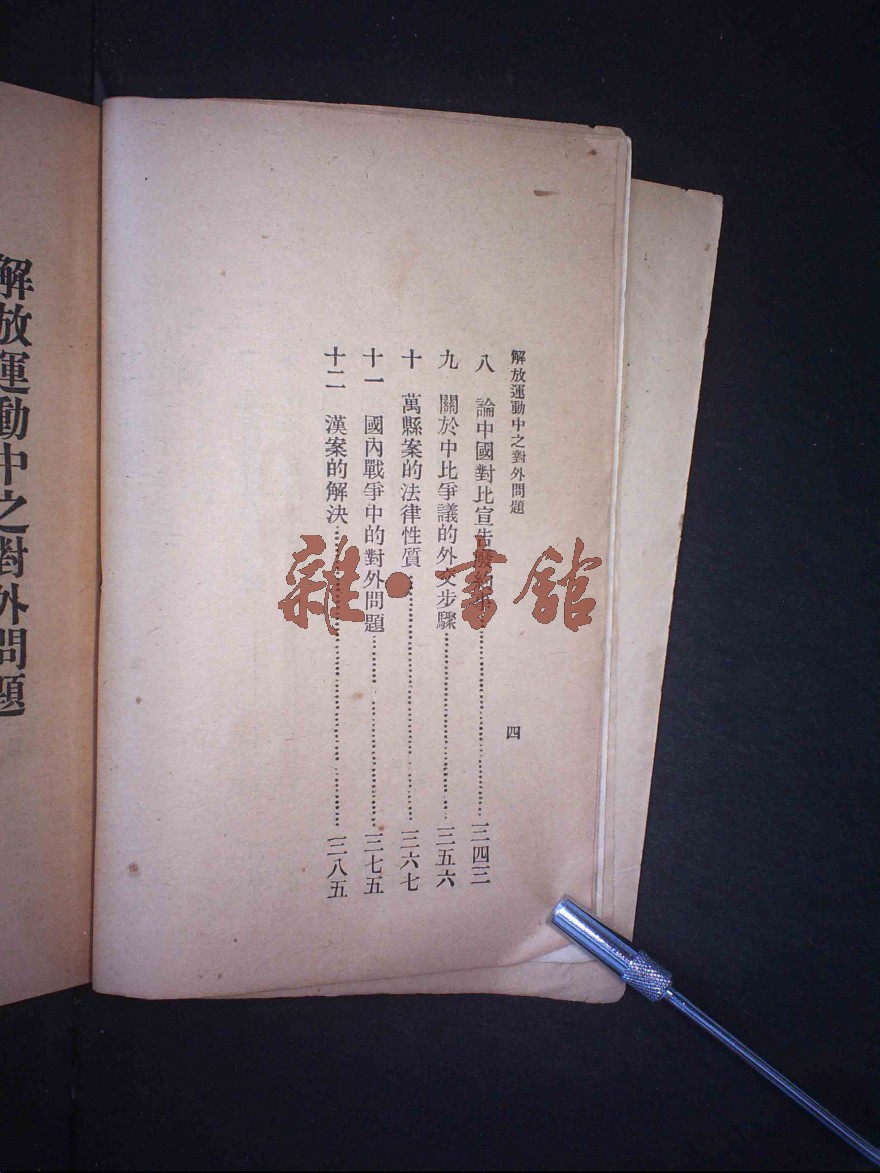 解放運動中之對外問題
四
八 論中國對比宣告廢約事……三四三
九 關於中比爭議的外交步驟……三五六
十 萬縣案的法律性質……三六七
十一 國內戰爭中的對外問題……三七五
十二 漢案的解決……三八五
解放運動中之對外問題
雜·書館